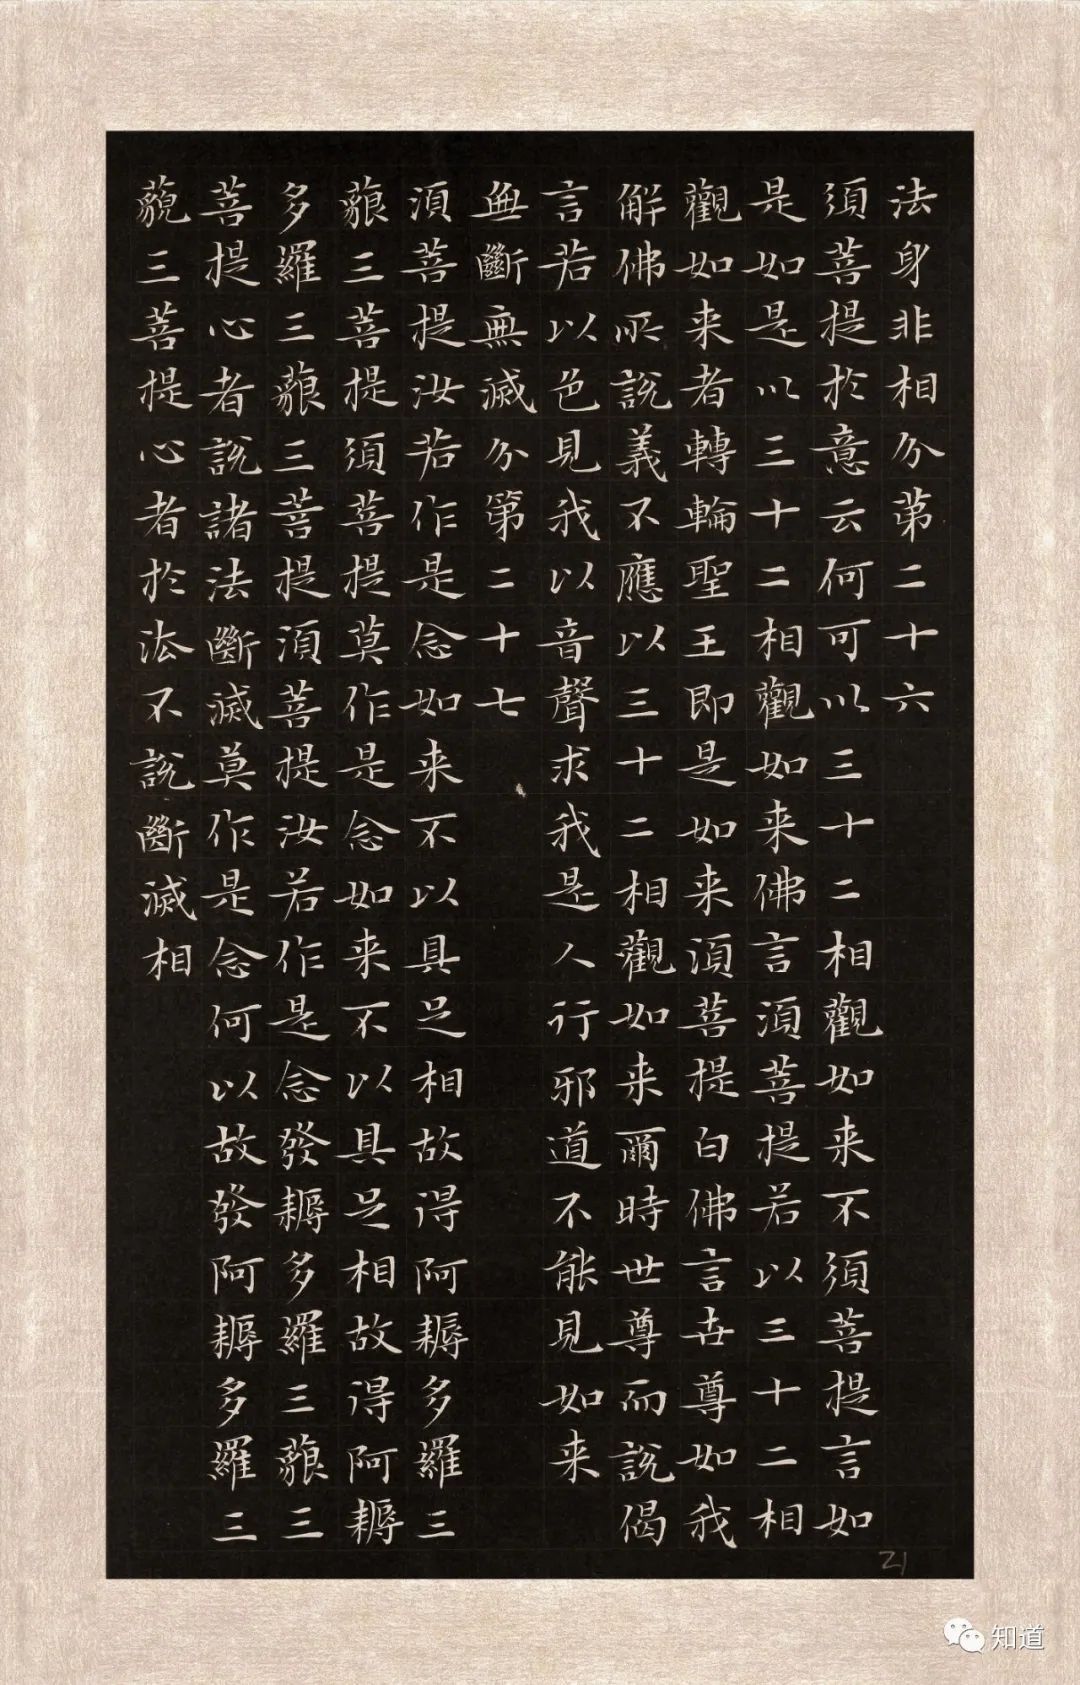 法身非相分第二十六
須菩提於意云何可以三十二相觀如来不須菩提言如
是如是以三十二相觀如来佛言須菩提若以三十二相
觀如来者轉輪聖王即是如来須菩提白佛言世尊如我
解佛所說義不應以三十二相觀如来爾時世尊而說偈
言若以色見我以音聲求我是人行邪道不能見如来
無斷無滅分第二十七
須菩提汝若作是念如来不以具足相故得阿耨多羅三
藐三菩提須菩提莫作是念如来不以具足相故得阿耨
多羅三藐三菩提須菩提汝若作是念發耨多羅三藐三
菩提心者說諸法斷滅莫作是念何以故發阿耨多羅三
藐三菩提心者於法不說斷滅相
21
知道